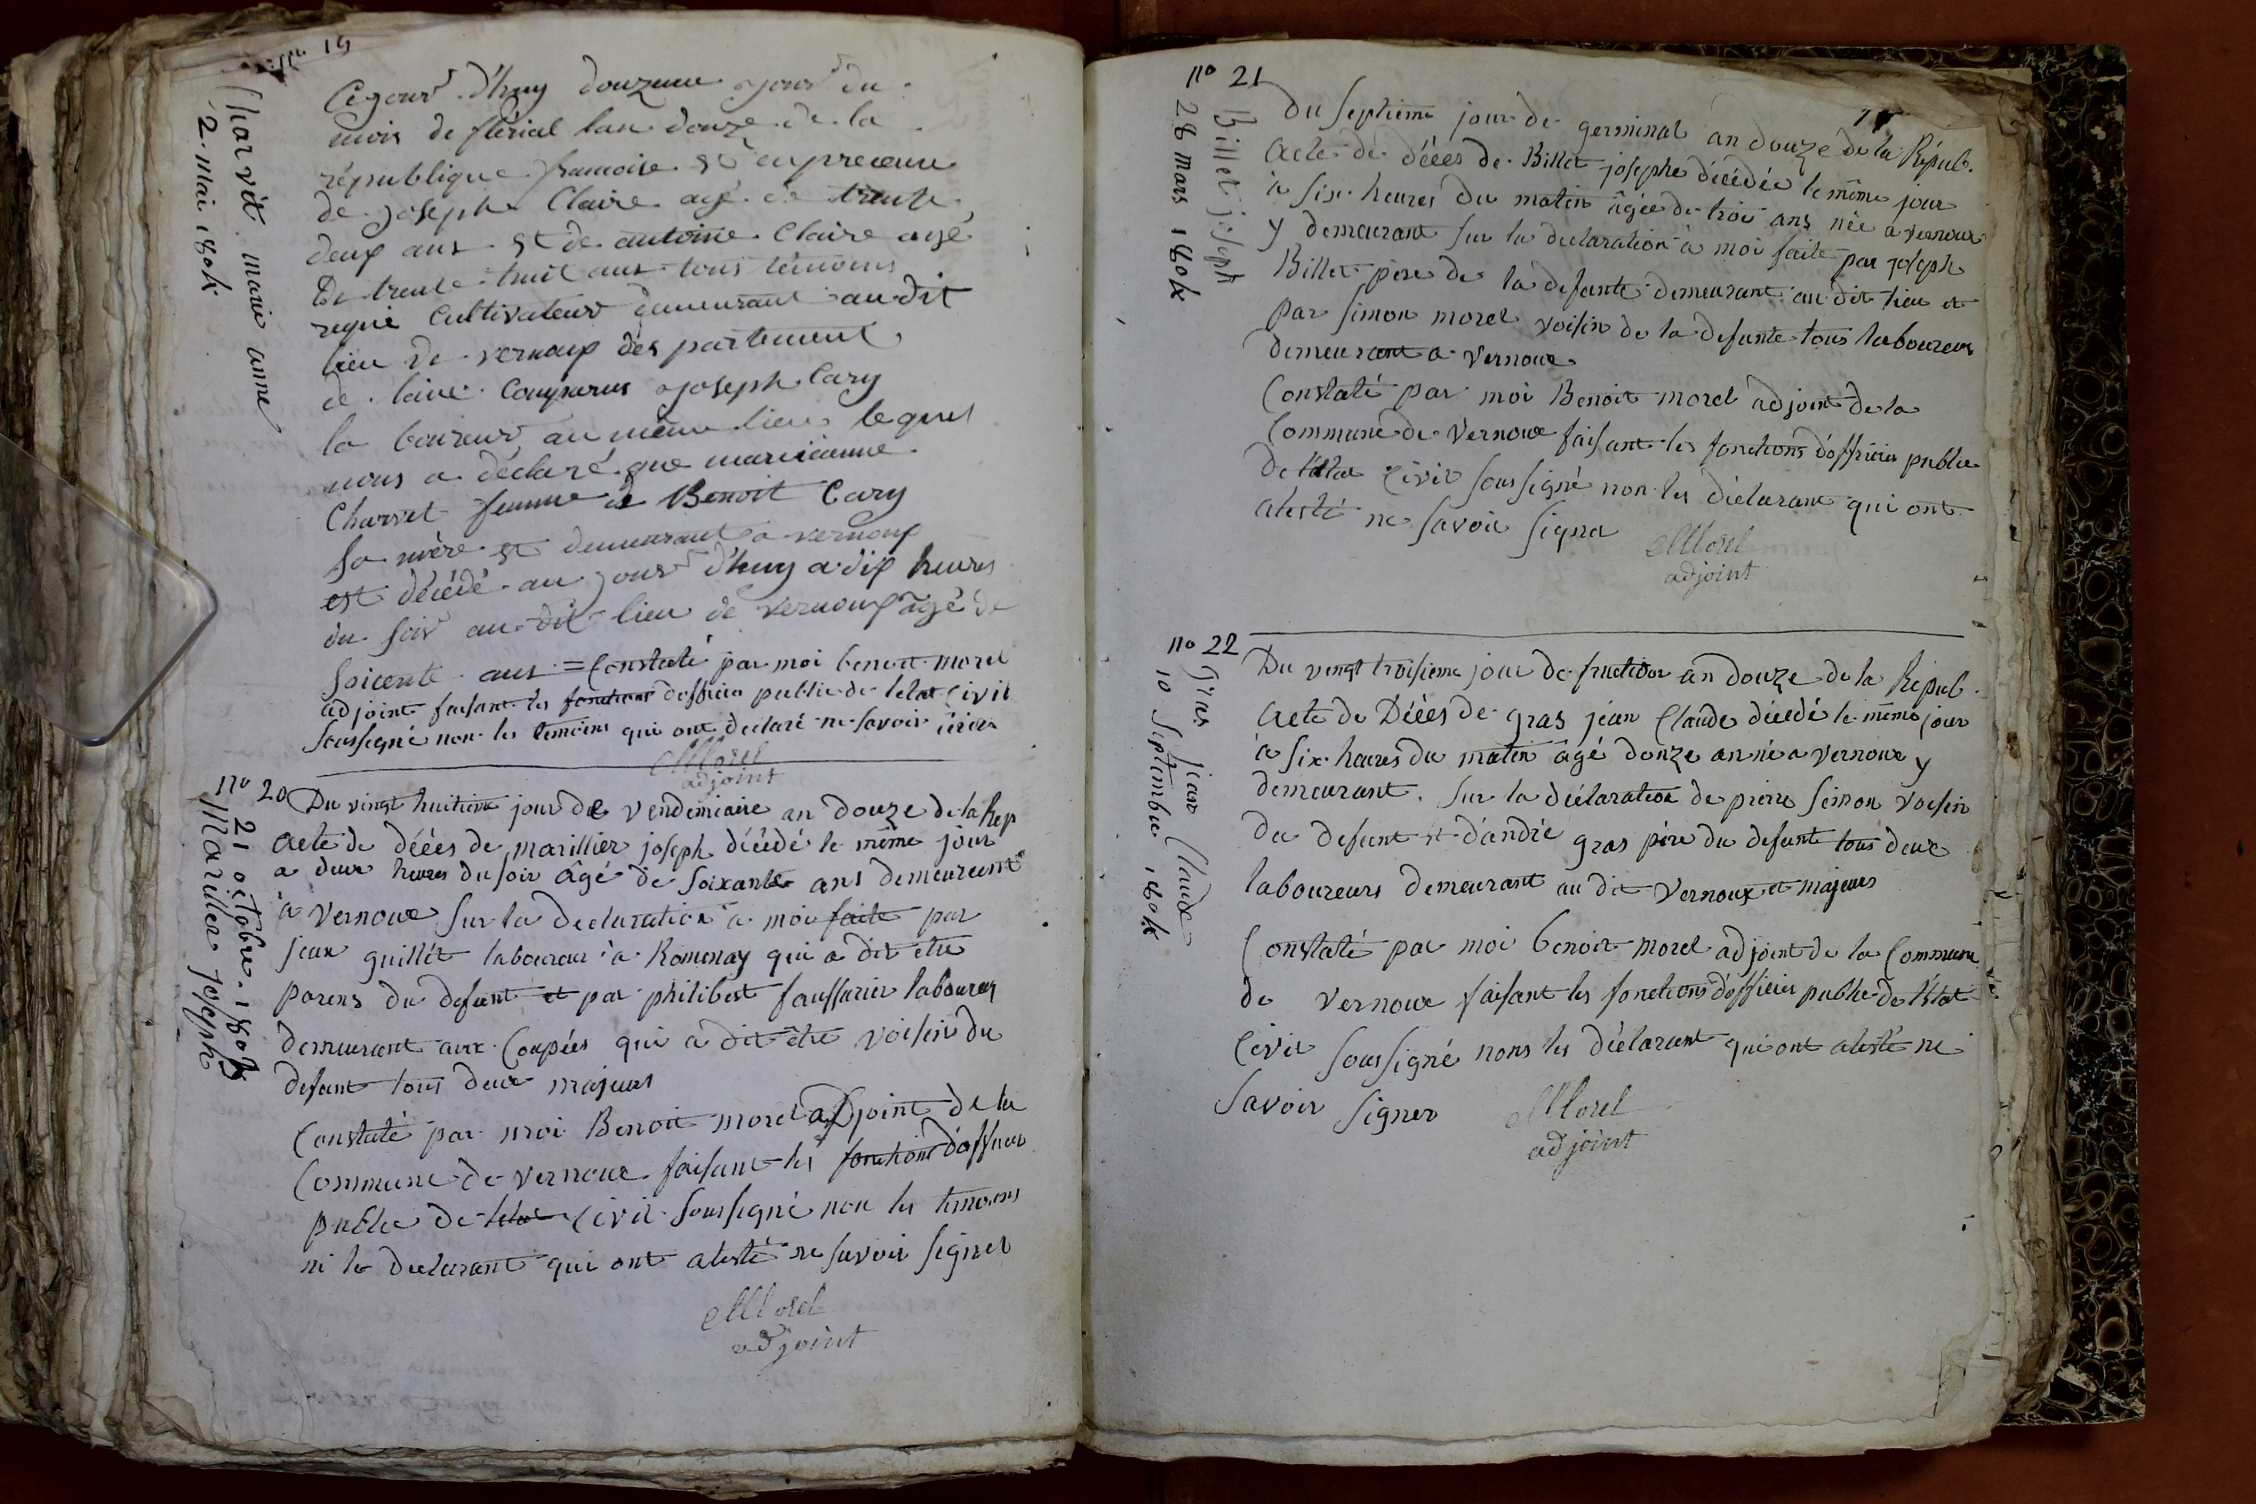 no 19
Charvet marie anne
2 mai 1804
Cejour d'huy douzeme jour du
mois de flérial lan douze de la
république francoise et en presence
de joseph Claire agé de trente
deux ans et de antoine Claire agé
De trente huit ans tous témoins
requi Cultivateur demeurant au dit
lieu de vernoux des partement
de laine Comparus joseph Cary
la boureur au même lieu lequel
nous a déclaré que marieanne
Charvet femme de Benoit Cary
sa mère et demeurant a vernoux
est décédé au jour d'huy a dix heures
du soir au dit lieu de vernoux agé de
soicente ans = Constaté par moi benoit morel
adjoint faisant les fonctions dofficier public de letat Civil
soussigné non les temoins qui ont declaré ne savoir écrire
Morel
adjoint
no 20
21 octobre 1803
Mariller joseph
Du vingt huitieme jour de vendemiaire an douze de la Rep
acte de décès de marillier joseph décédé le même jour
a deux heures du soir âgé de soixante ans demeurant
à vernoux sur la declaration à moi faite par
jean guillet laboureur à Romenay qui a dit etre
parens du defunt et par philibert faussurier laboureur
demeurant aux Coupées qui a dit être voisin du
defunt tous deux majeurs
Constaté par moi Benoit morel adjoint de la
Commune de vernoux faisant les fonctions d'officier
public de letat Civil soussigné non les temoins
ni le declarant qui ont atesté ne savoir signer
Morel
adjoint
no 21
Billet joseph
28 mars 1804
Du septieme jour de germinal an douze de la Répub.
acte de décés de Billet josephe décédée le même jour
à six heures du matin âgée de troi ans née a vernoux
y demeurant sur la declaration à moi faite par joseph
Billet père de la defunte demeurant au dit lieu et
par simon morel voisin de la defunte tous laboureur
demeurant a vernoux
Constaté par moi Benoit morel adjoint de la
Commune de vernoux faisant les fonctions d'officier public
de létat Civil sous signé non les déclarant qui ont
atesté ne savoir signer
Morel
adjoint
no 22
gras jean Claude
10 septembre 1804
Du vingt troisieme jour de fructidor an douze de la Répub.
acte de Décès de gras jean Claude décédé le même jour
à six heures du matin âgé donze an né a vernoux y
demeurant. sur la déclaration de pierre simon voisin
du defunt et d'andré gras père du defunt tous deux
laboureurs demeurant au dit vernoux et majeurs
Constaté par moi benoit morel adjoint de la Commune
de vernoux faisant les fonctions d'officier public de l'état
Civil soussigné nons les déclarant qui ont atesté ne
savoir signer
Morel
adjoint